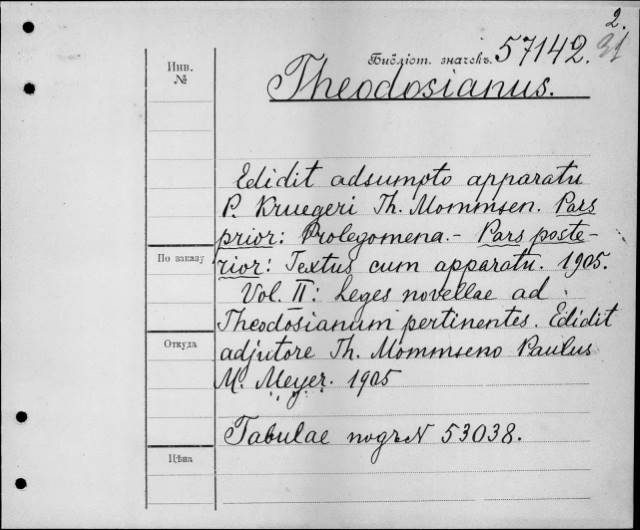 2.
Библіот. значекъ. 57142. 31
Инв.
№
Theodosianus.
Edidit adsumpto apparatu
P. Kruegeri Th. Mommsen. Pars
prior: Prolegomena. – Pars poste-
rior: Textus cum apparatu. 1905.
По заказу
Vol. II: Leges novellae ad
Theodosianum pertinentes. Edidit
Откуда
adjutore Th. Mommseno Paulus
M. Meyer. 1905
Tabulae подъ N 53038.
Цѣна